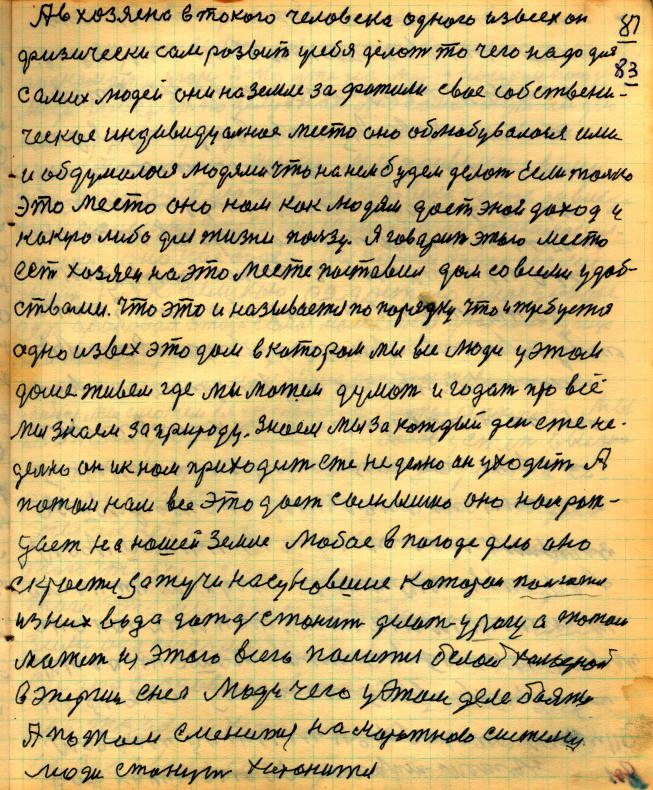 А в хозяена в токого человека одного из всех он
87
физически сам розвит у себя делает то чего надо для
83
самих людей они на земле захватили свое собствени-
ческое индивидуалное место оно облюбувалося ими
и обдумалося людями что на нем будем делат Если только
это место оно нам как людям даст этой доход и
какую либо для жизни ползу. Я говарит этого место
ест хозяен на это месте поставил дом со всеми удоб-
ствами. Что это и называется по порядку что и требуется
одно из всех это дом в котором мы все люди у этом
доме живем где мы можем думат и гадат про всё
мы знаем за природу. Знаем мы за каждый ден сте не-
делно он и к нам приходит сте неделно он уходит А
потом нам все это дает солнышко оно нам рож-
дает на нашей земле любое в погоде дело оно
скроется за тучи насуновшие которои
из них вода дожд станит делат у а потом
может из этого всего полится белой
в энергии снег Люди чего у этом деле боятся
А потом сменится на систему
люди станут